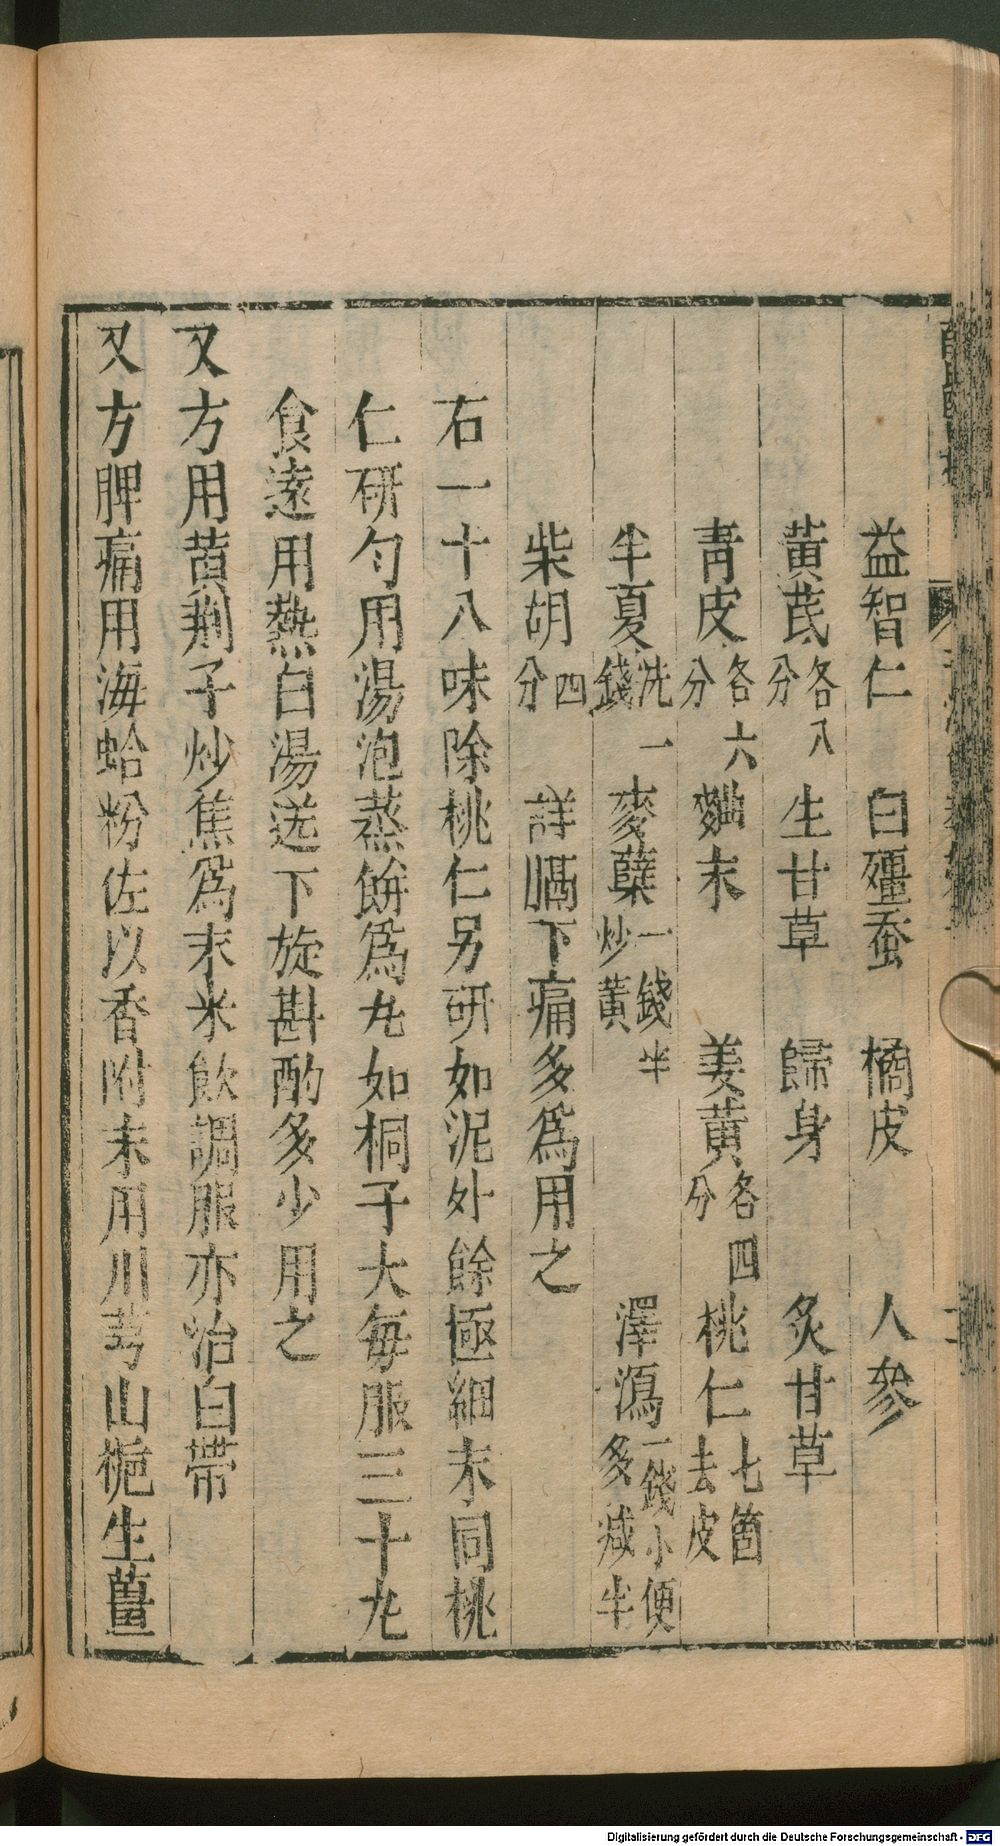 益智仁　白殭蚕　橘皮　人參
黄芪各八分　生甘草　歸身　炙甘草
靑皮各六分　麯末　姜黄各四分　桃仁七箇去皮
半夏洗一錢　麥蘖一錢半炒黄　澤瀉一錢小便多减半
柴胡四分　詳膈下痛多爲用之
右一十八味除桃仁另研如泥外餘極細末同桃
仁研勻用湯泡蒸餅爲丸如桐子大每服三十丸
食遠用熱白湯送下旋斟酌多少用之
又方用黄荆子炒焦爲末米飲調服亦治白帶
又方脾痛用海蛤粉佐以香附末用川芎山梔生薑
Digitalisierung gefördert durch die Deutsche Forschungsgemeinschaft - DFG